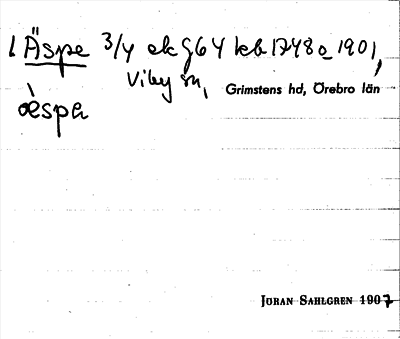 1 Äspe 3/4 ek G64 kb 1748 o 1901,
Viby sn, Grimstens hd, Örebro län
òespa
JÖRAN SAHLGREN 1907